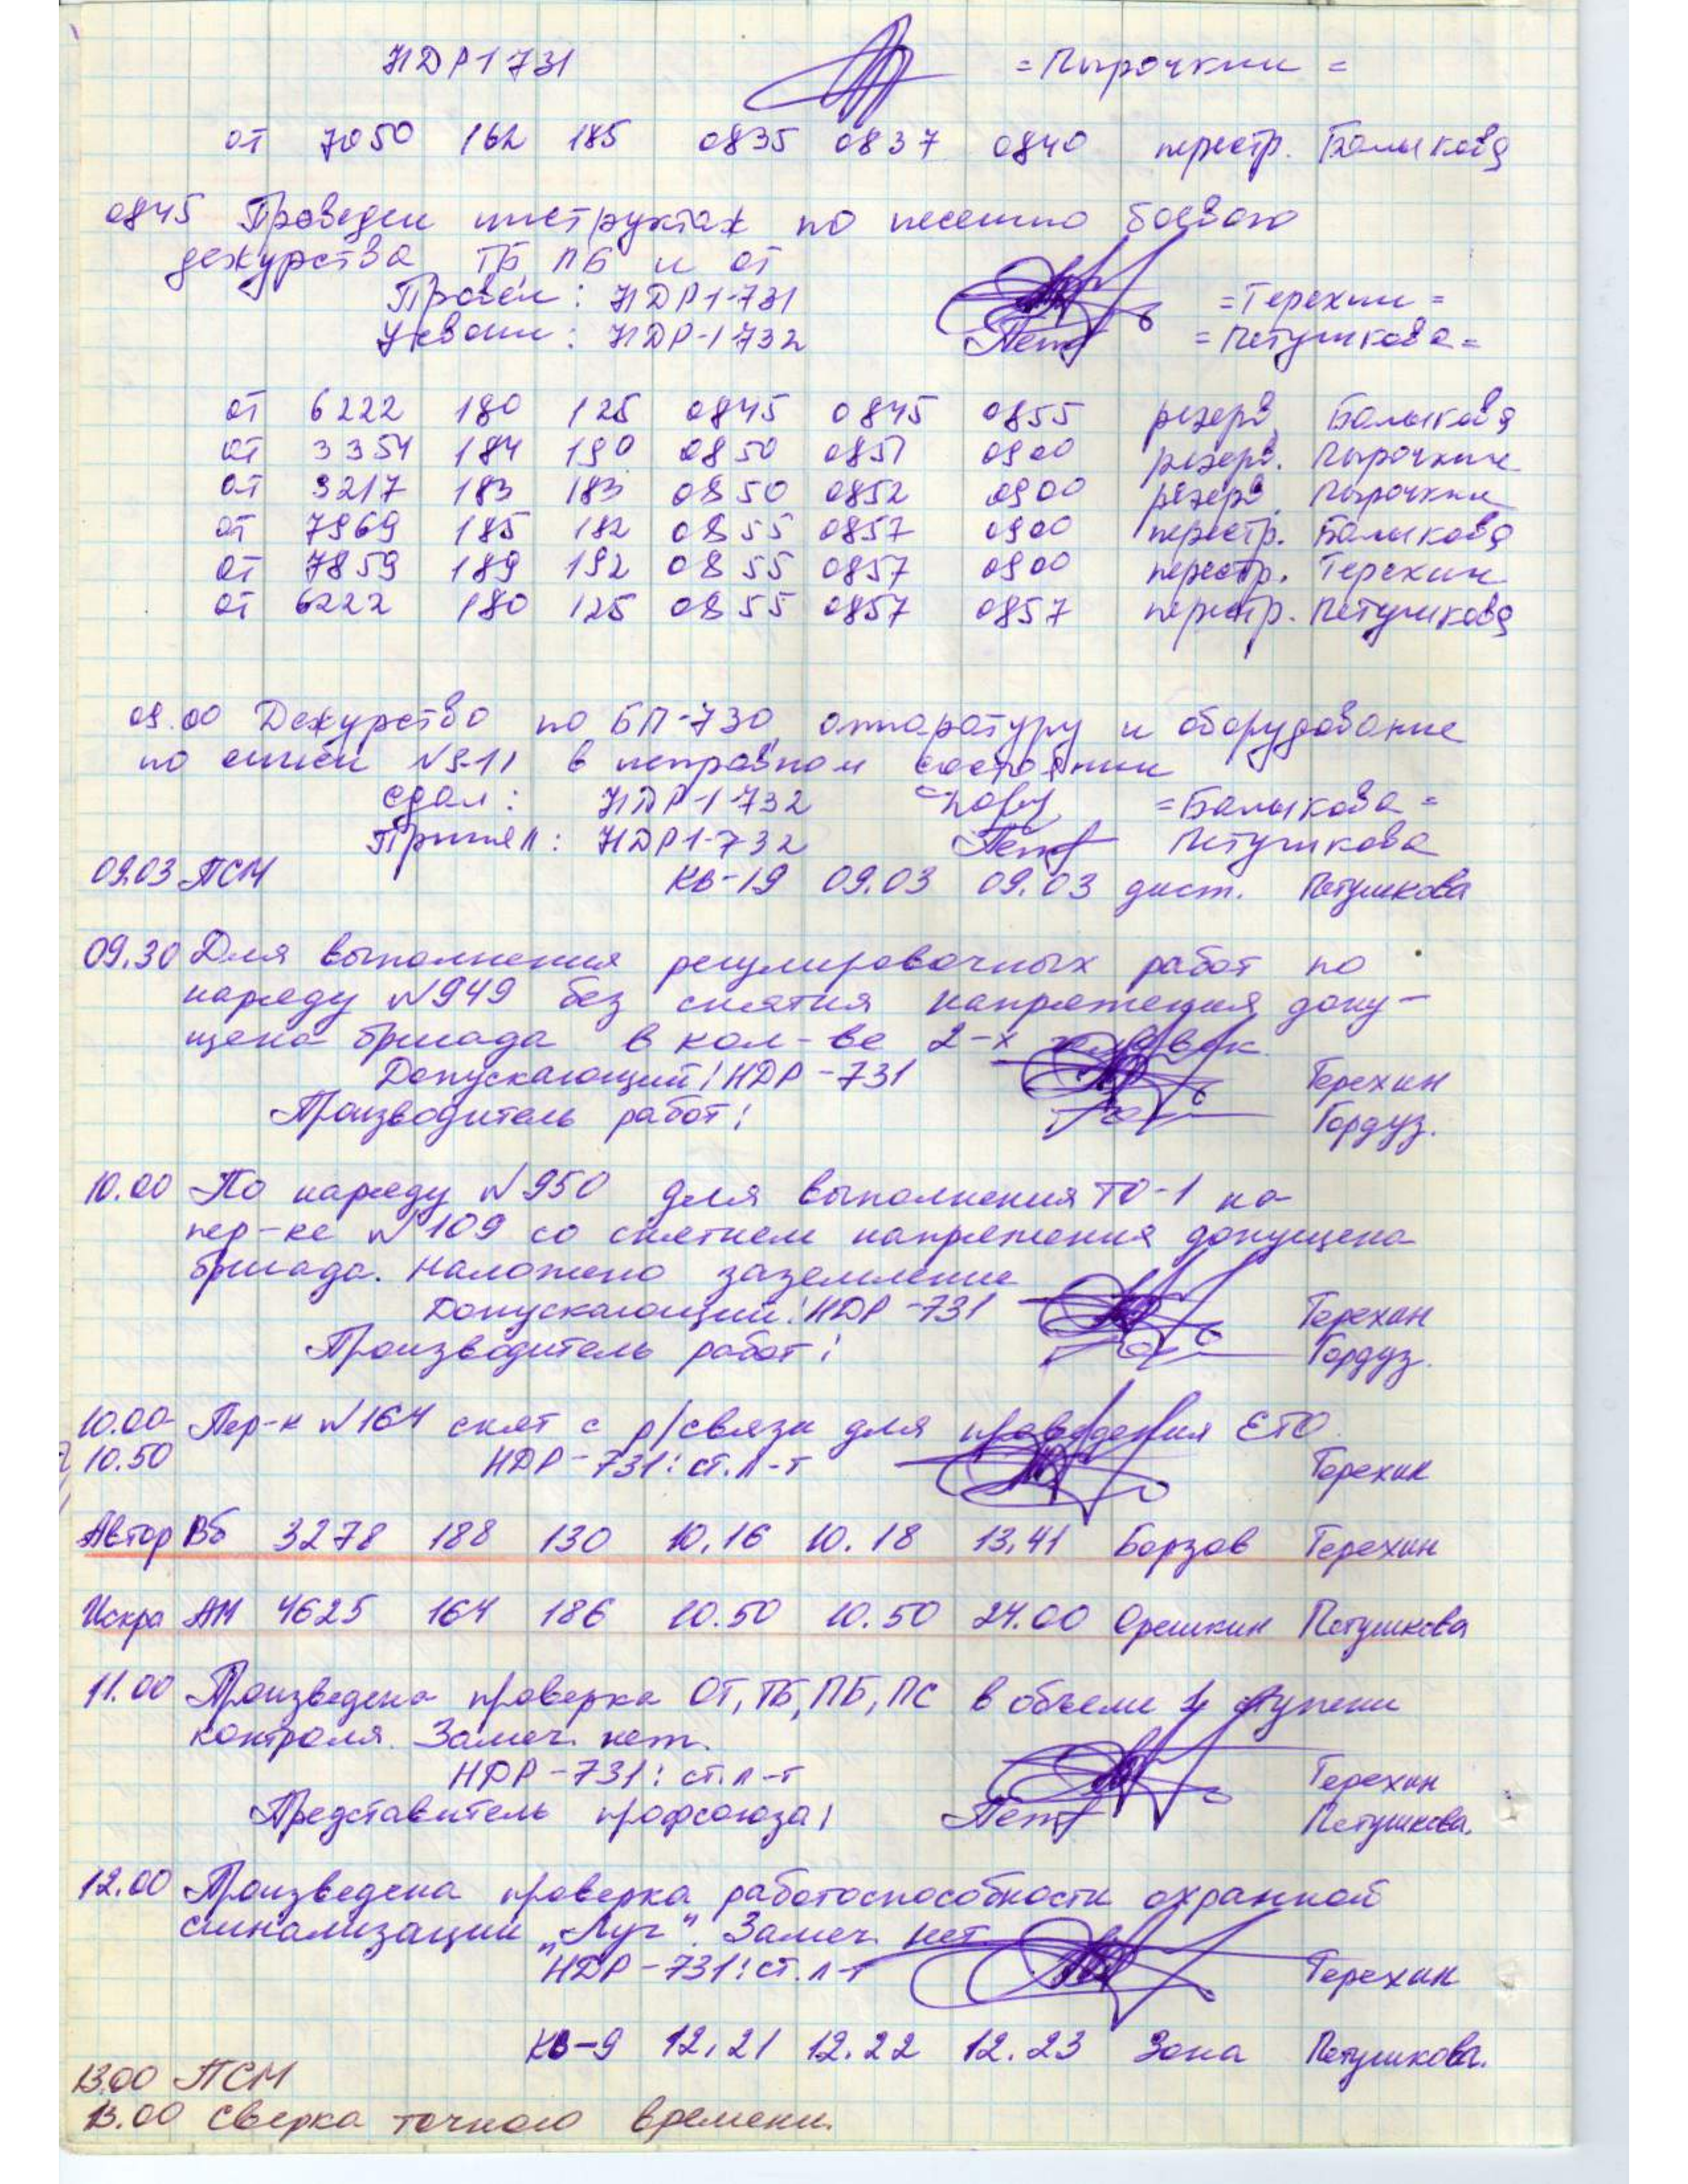 НДР1 731 = Пырочкин =
от 7050 162 185 0835 0837 0840 перестр. Балыкова
0845 Проведен инструктаж по несению боевого
дежурства ТБ, ПБ и от
Провел: НДР1-731 =Терехин=
Усвоили: НДР-1 732 =Петушкова=
от 6222 180 125 0845 0845 0855 резерв. Балыкова
от 3354 184 190 0850 0851 0900 резерв. Пырочкин
от 3217 183 183 0850 0852 0900 резерв. Пырочкин
от 7969 185 182 0855 0857 0900 перестр. Балыкова
от 7859 189 192 0855 0857 0900 перестр. Терехин
от 6222 180 125 0855 0857 0857 перестр. Петушкова
09.00 Дежурство по БП-730, аппаратуру и оборудование
по описи №9-11 в исправном состоянии
сдал: НДР-1 732 =Балыкова=
Принял: НДР1-732 Петушкова
09.03 ПСМ КВ-19 09.03 09.03 дист. Петушкова
09.30 Для выполнения регулировочных работ по
наряду №949 без снятия напряжения допу-
щена бригада в кол-ве 2-х человек
Допускающий: НДР-731 Терехин
Производитель работ: Гордуз.
10.00 По наряду №950 для выполнения ТО-1 на
пер-ке №109 со снятием напряжения допущена
бригада. Наложено заземление
Допускающий: НДР-731 Терехин
Производитель работ: Гордуз.
10.00- Пер-к №164 снят с р/связи для проведения ЕТО.
10.50 НДР-731: ст. л-т Терехин
Автор Вб 3278 188 130 10.16 10.18 13.41 Борзов Терехин
Искра АМ 4625 164 186 10.50 10.50 24.00 Орешкин Петушкова
11.00 Произведена проверка ОТ, ТБ, ПБ, ПС в объеме 1 ступени
контроля. Замеч. нет.
НДР-731: ст. л-т Терехин
Представитель профсоюза: Петушкова.
12.00 Произведена проверка работоспособности охранной
сигнализации „Луч". Замеч. нет.
НДР-731: ст. л-т Терехин
КВ-9 12.21 12.22 12.23 Зона Петушкова.
13.00 ПСМ
13.00 Сверка точного времени.